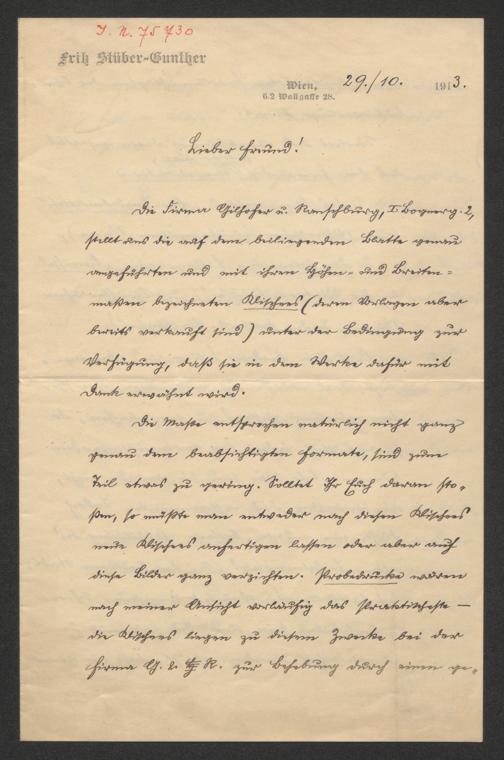 I. N. 75730
Fritz Stüber-Gunther
Wien, 29./10. 1913.
6.2 Wallgasse 28.
Lieber Freund!
Die Firma Gilhofer u. Ranschburg, I. Bognerg. 2,
stellt uns die auf dem beiliegenden Blatte genau
angeführten und mit ihren Höhen- und Breiten-
maßen bezeichneten Klischees (deren Vorlagen aber
bereits verkauft sind) unter der Bedingung zur
Verfügung, daß sie in dem Werke dafür mit
Dank erwähnt wird.
Die Maße entsprechen natürlich nicht ganz
genau dem beabsichtigten Formate, sind zum
Teil etwas zu gering. Solltet Ihr Euch daran sto-
ßen, so müßte man entweder nach diesen Klischees
neue Klischees anfertigen lassen oder aber auf
diese Bilder ganz verzichten. Probedrucke wären
nach meiner Ansicht vorläufig das Praktischeste —
die Klischees liegen zu diesem Zwecke bei der
Firma G. & R. zur Behebung durch einen ge-